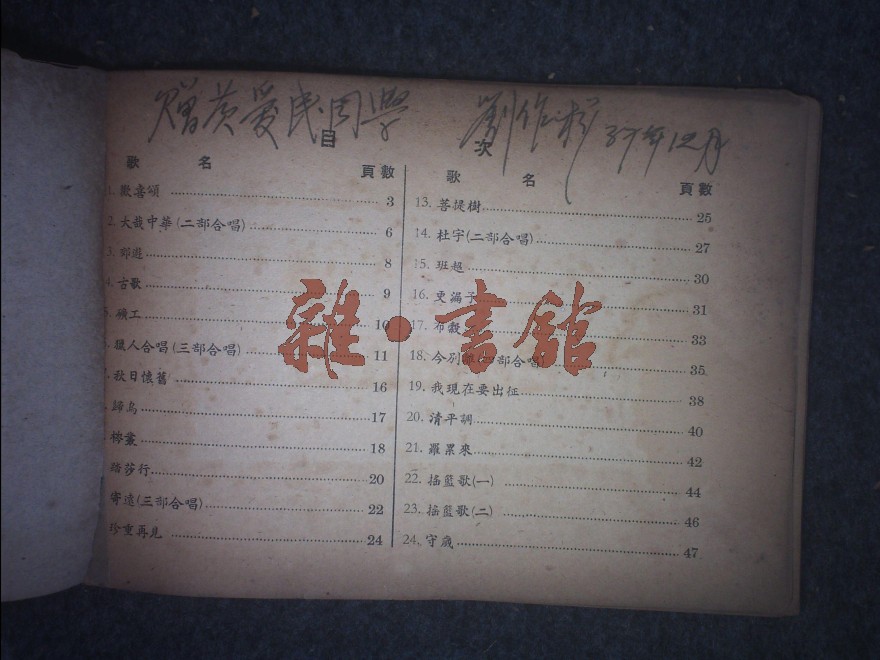 贈黄愛民同學 劉作 37年12月
目 次
歌 名 頁數
1. 歡喜頌 3
2. 大哉中華(二部合唱) 6
3. 郊遊 8
4. 古歌 9
礦工 10
獵人合唱(三部合唱) 11
秋日懷舊 16
歸鳥 17
18
踏莎行 20
寄遠(三部合唱) 22
珍重再見 24
歌 名 頁數
13. 菩提樹 25
14. 杜宇(二部合唱) 27
15. 班超 30
16. 更漏子 31
17. 布穀 33
18. 今別離(二部合唱) 35
19. 我現在要出征 38
20. 清平調 40
21. 羅累來 42
22. 搖籃歌(一) 44
23. 搖籃歌(二) 46
24. 守歲 47
雜·書館